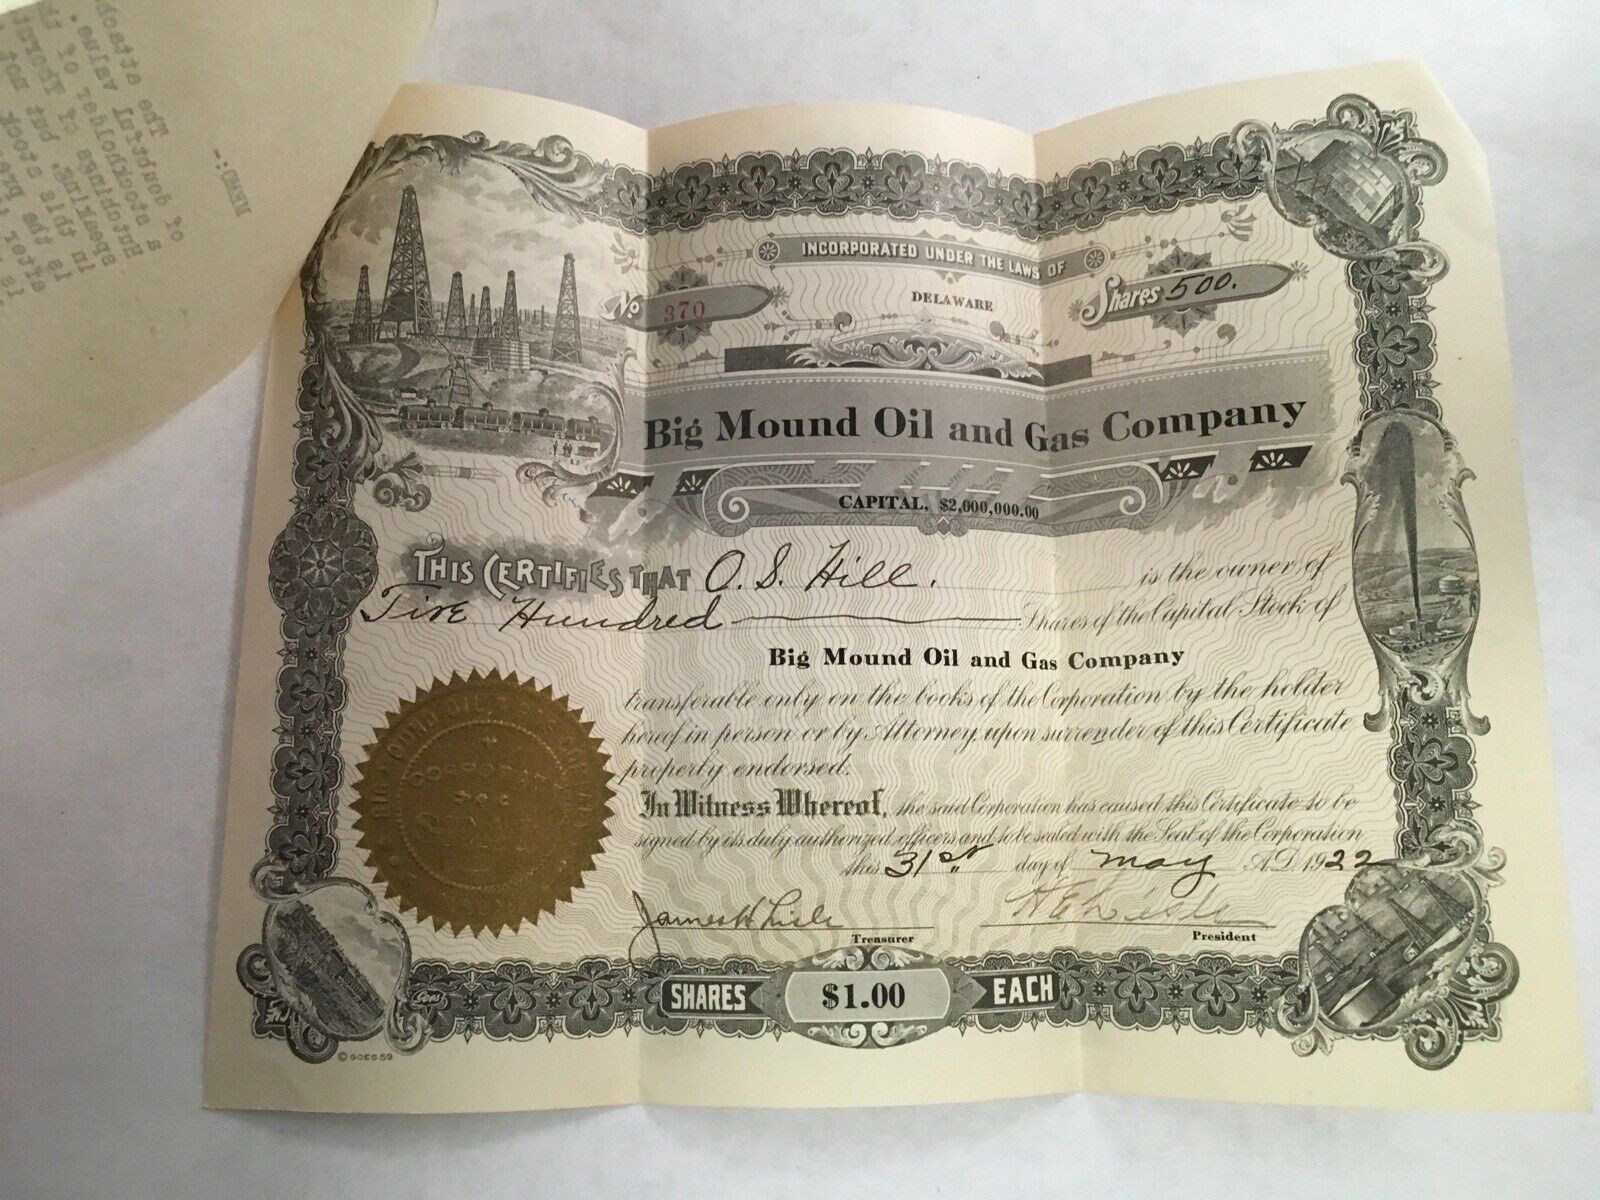 INCORPORATED UNDER THE LAWS OF
DELAWARE
No. 370
Shares 500.
Big Mound Oil and Gas Company
CAPITAL, $2,000,000.00
THIS CERTIFIES THAT O. S. Hill. is the owner of
Five Hundred Shares of the Capital Stock of
Big Mound Oil and Gas Company
transferable only on the books of the Corporation by the holder
hereof in person or by Attorney, upon surrender of this Certificate
properly endorsed.
In Witness Whereof, the said Corporation has caused this Certificate to be
signed by its duly authorized officers and to be sealed with the Seal of the Corporation
this 31st day of May A.D. 1922
James H Lisle
Treasurer
President
SHARES $1.00 EACH
Goes
© GOES 59
MEMO:-
The attach
of doubtful value.
a stockholder of
Hutchings of Th
in speaking
is the stock
after